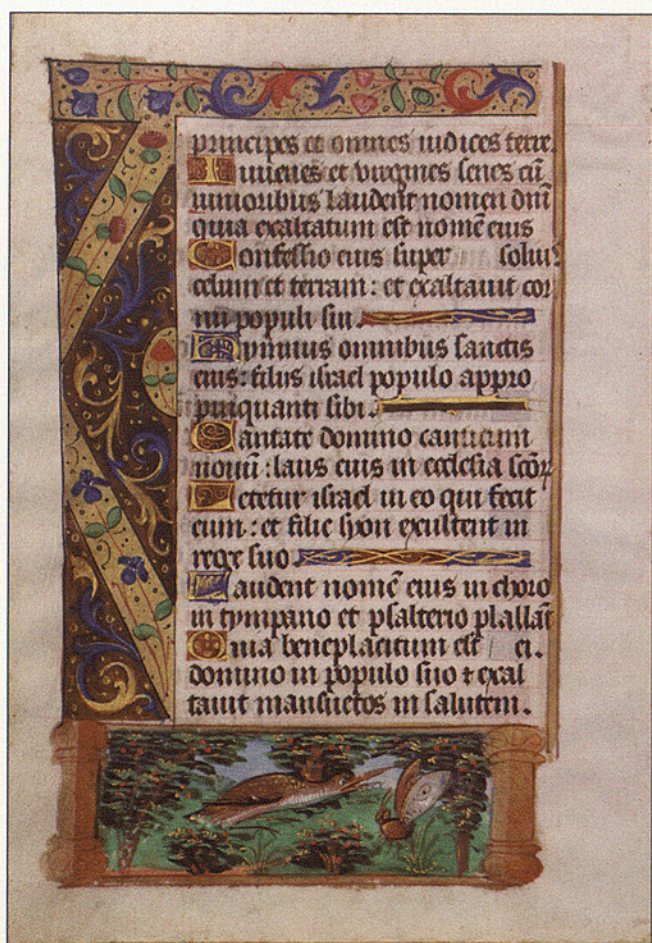 principes et omnes iudices terre.
Iuuenes et virgines senes cū
iunioribus laudent nomen dn̄i
quia exaltatum est nomē eius
Confessio eius super soliu?
celum et terram : et exaltauit cor
nu populi sui.
Hymnus omnibus sanctis
eius : filiis israel populo appro
pinquanti sibi.
Cantate domino canticum
nouū : laus eius in ecclesia scōꝝ
Letetur israel in eo qui fecit
eum : et filie syon exultent in
rege suo.
Laudent nomē eius in choro
in tympano et psalterio psallāt
Quia beneplacitum est ei.
domino in populo suo ⁊ exal
tauit mansuetos in salutem.